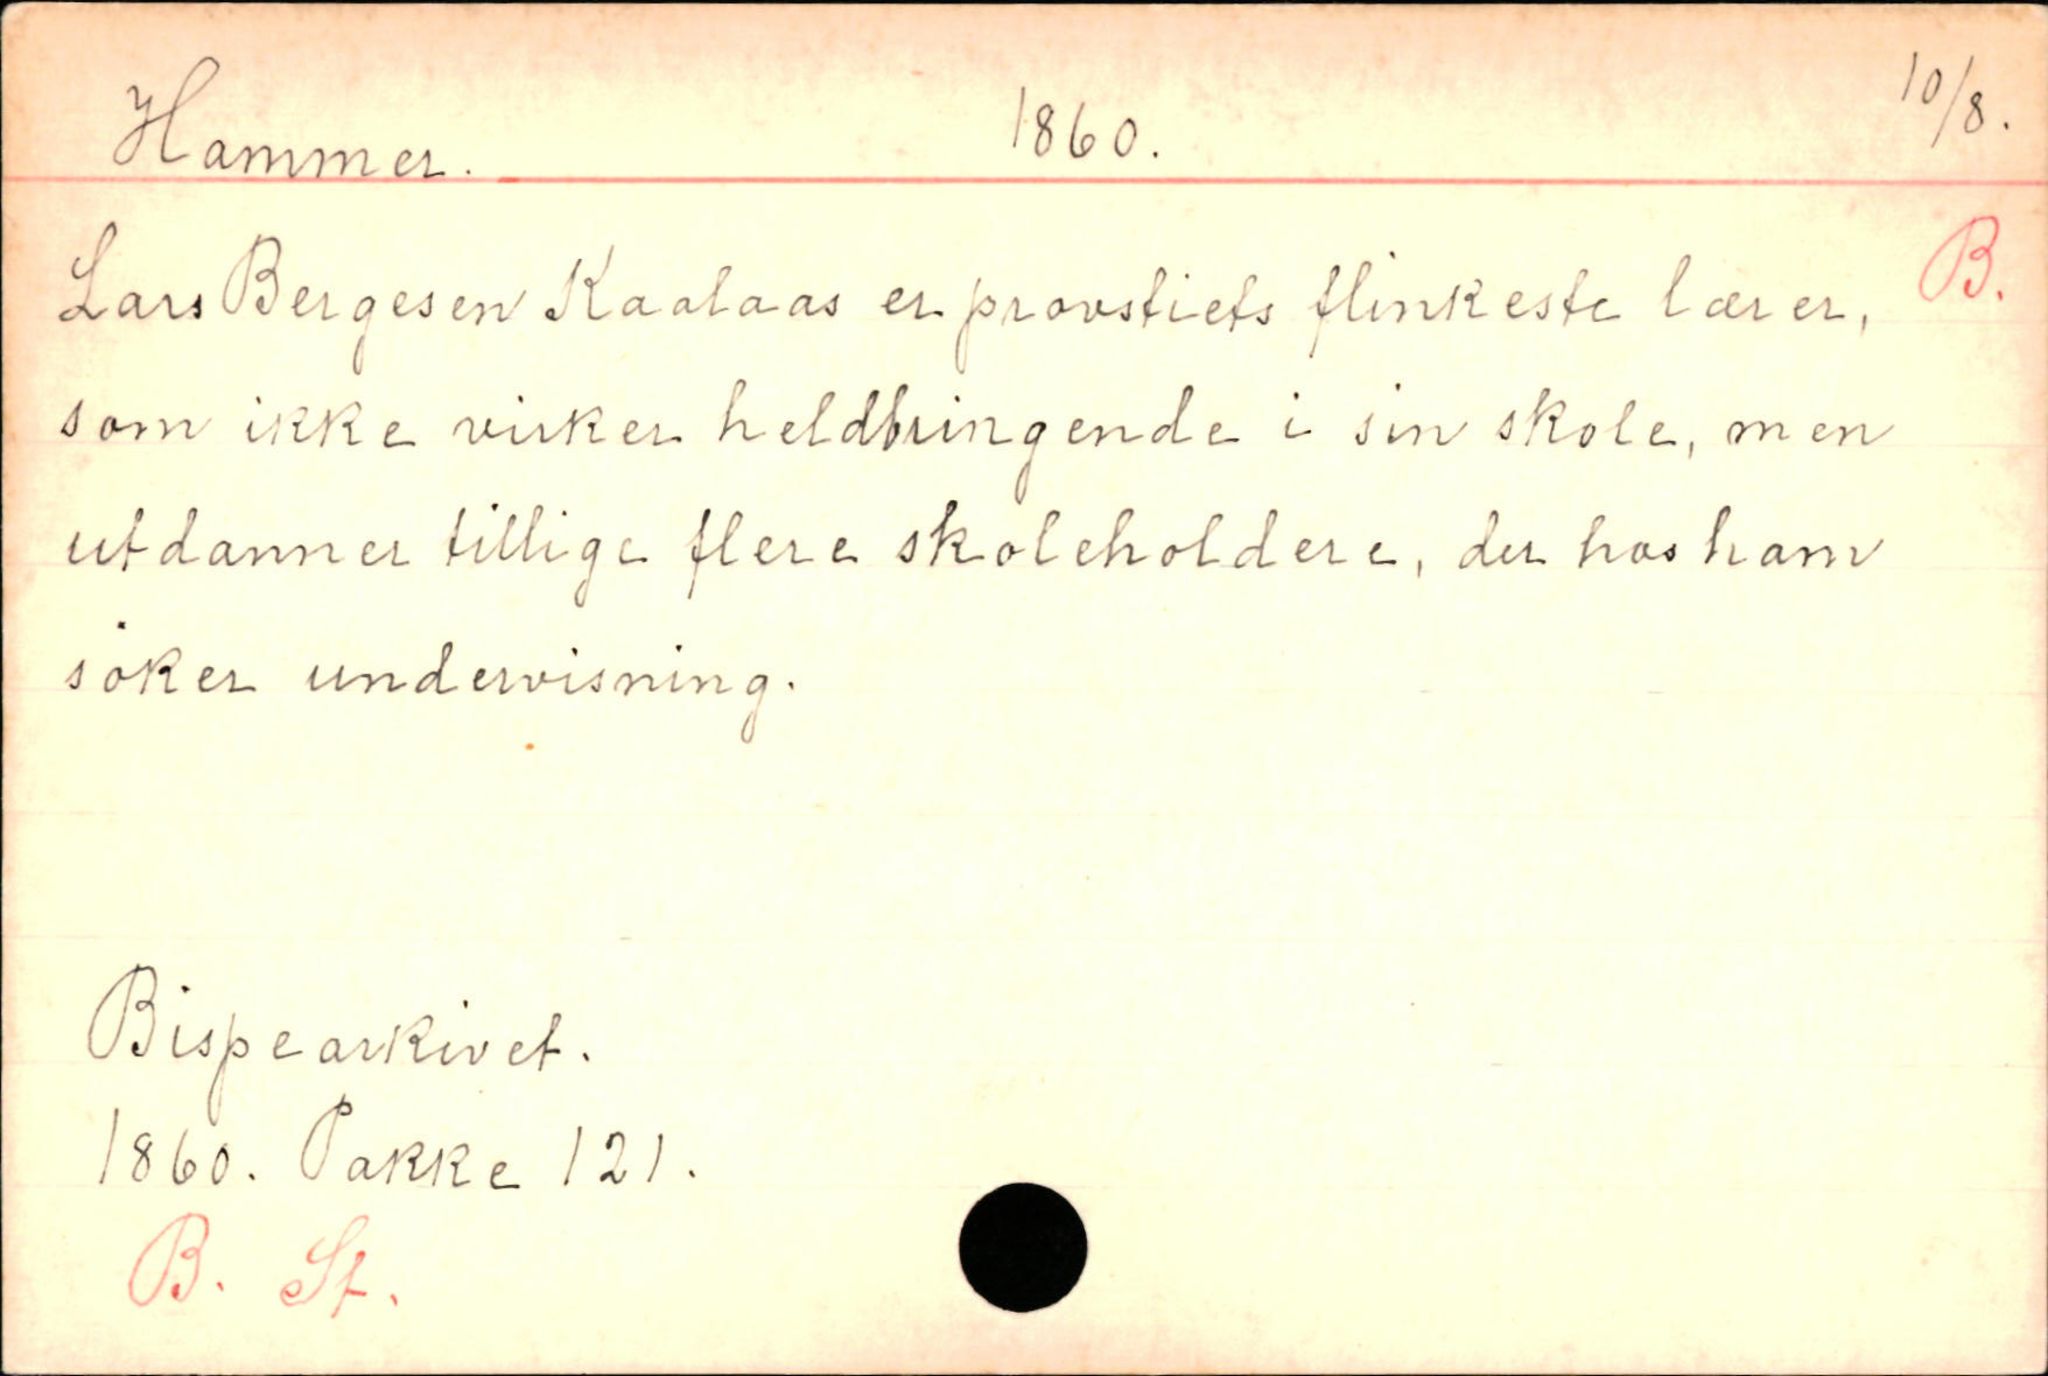 Hammer. 1860. 10/8.
Lars Bergesen Kaalaas er provstiets flinkeste lærer, B.
som ikke virker heldbringende i sin skole, men
utdanner tillige flere skoleholdere, der hos ham
söker undervisning.
Bispearkivet.
1860. Pakke 121.
B. St.